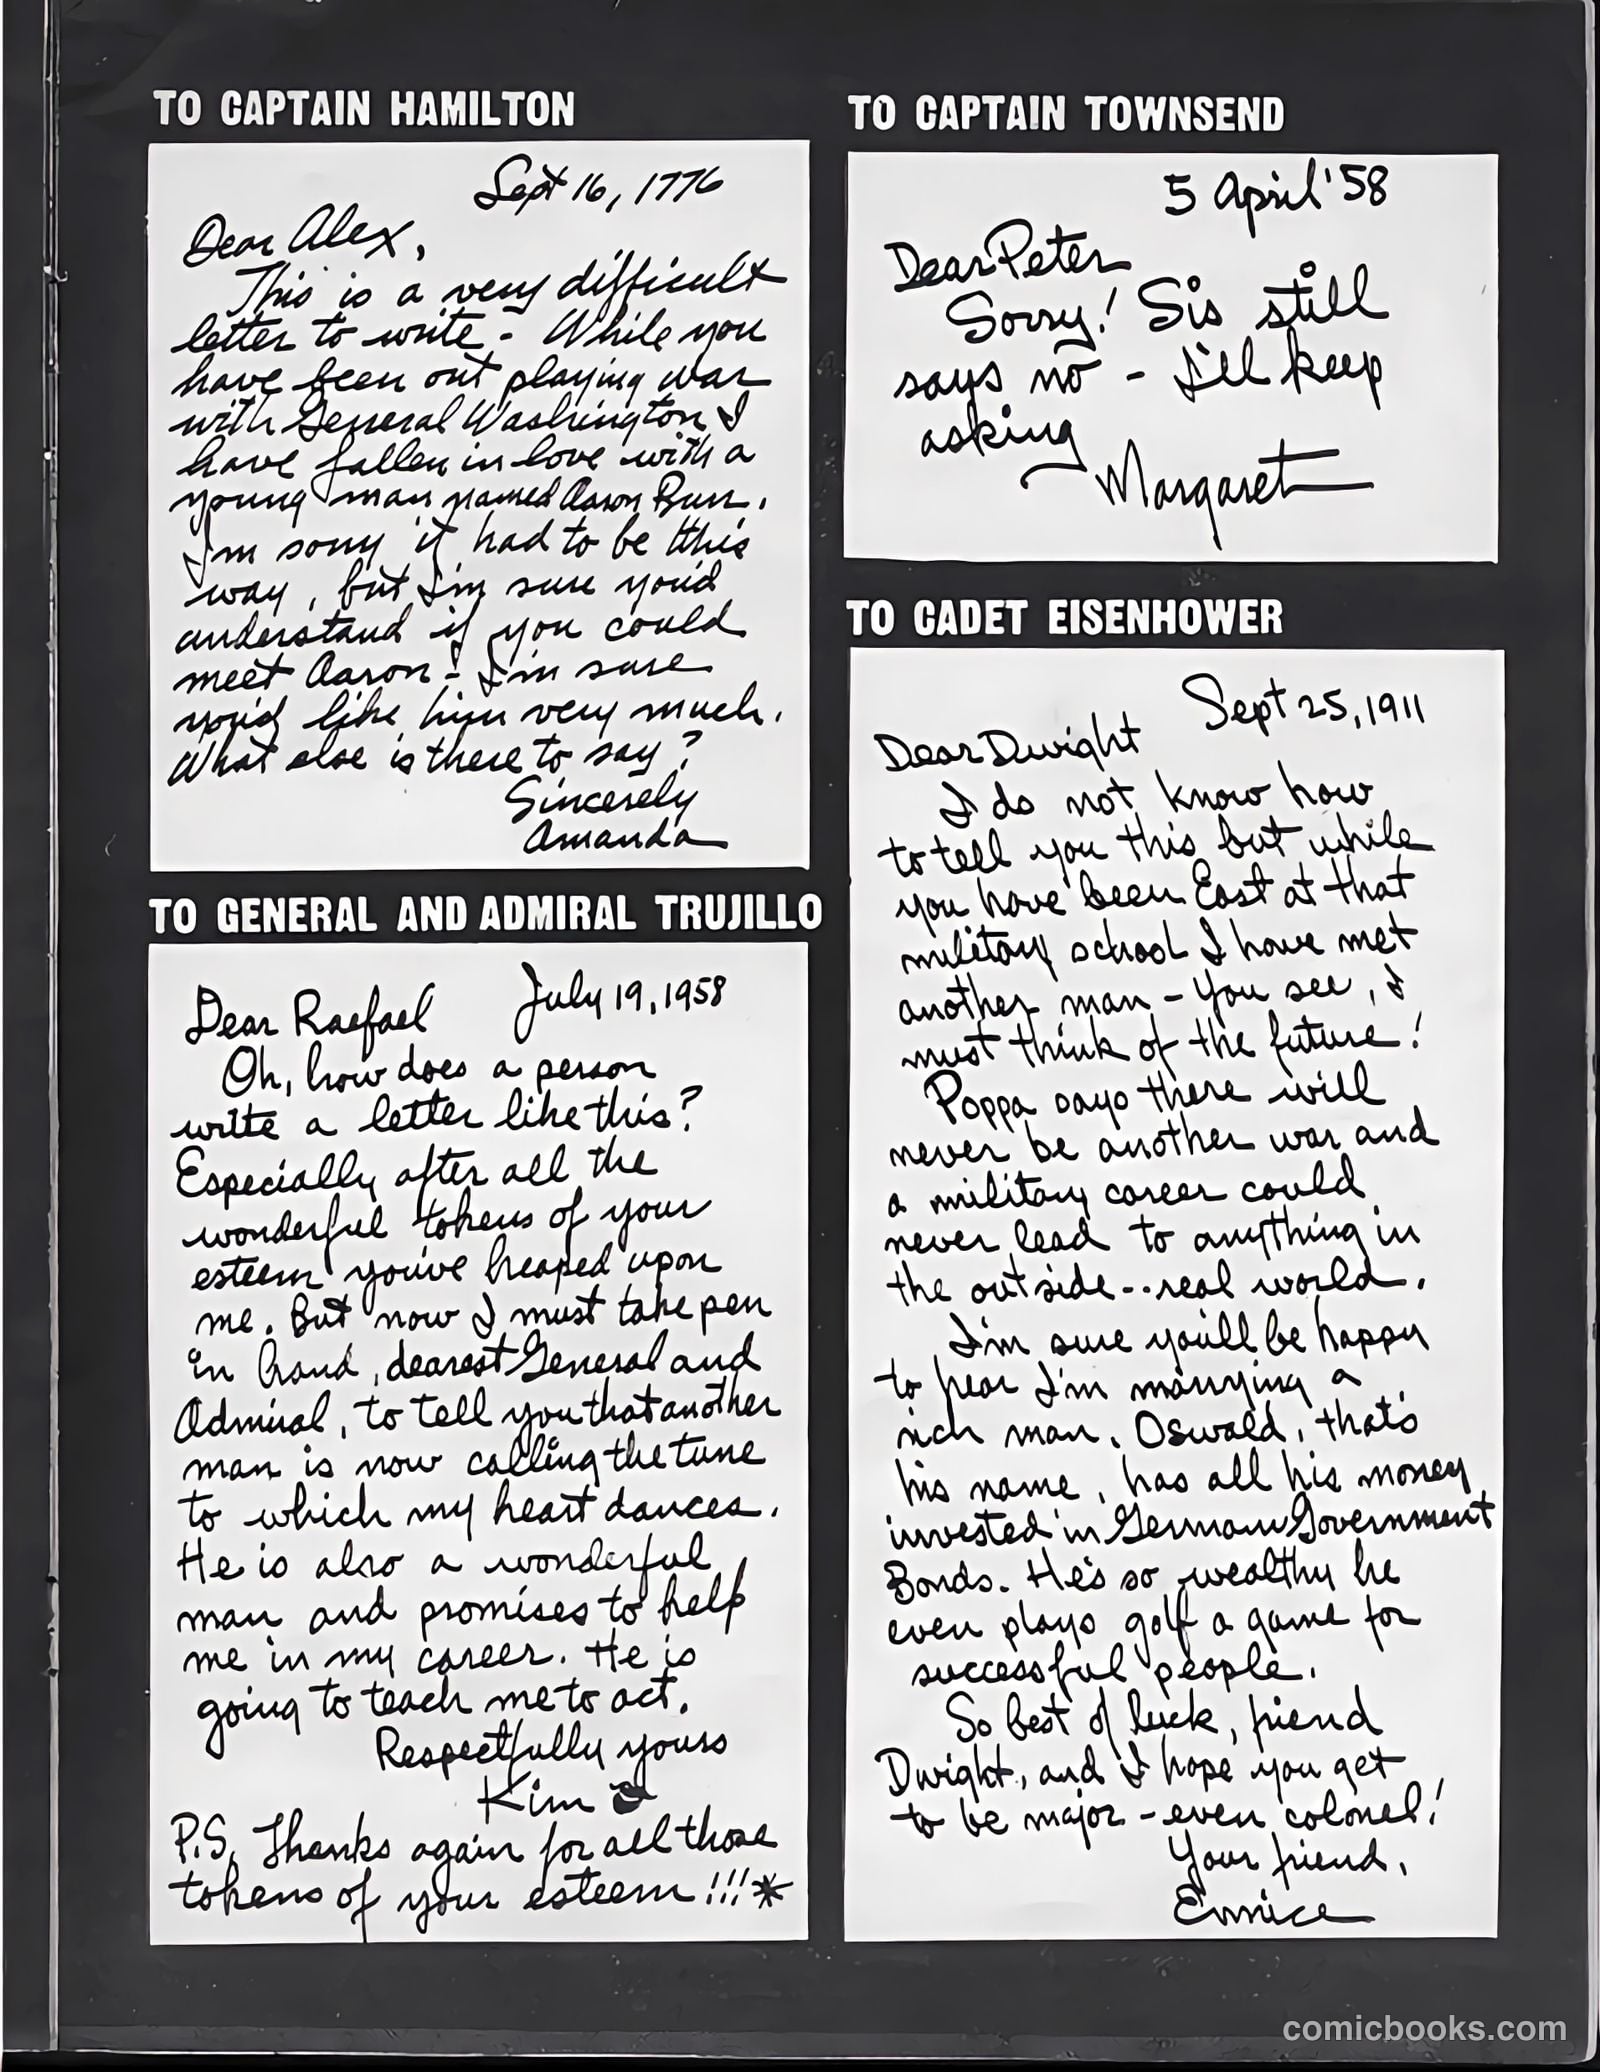 TO CAPTAIN HAMILTON
Sept 16, 1776
Dear Alex,
This is a very difficult
letter to write - While you
have been out playing war
with General Washington I
have fallen in love with a
young man named Aaron Burr.
I'm sorry it had to be this
way, but I'm sure you'd
understand if you could
meet Aaron - I'm sure
you'd like him very much.
What else is there to say?
Sincerely
Amanda
TO GENERAL AND ADMIRAL TRUJILLO
July 19, 1958
Dear Raefael
Oh, how does a person
write a letter like this?
Especially after all the
wonderful tokens of your
esteem you've heaped upon
me. But now I must take pen
in hand, dearest General and
Admiral, to tell you that another
man is now calling the tune
to which my heart dances.
He is also a wonderful
man and promises to help
me in my career. He is
going to teach me to act.
Respectfully yours
Kim
P.S. Thanks again for all those
tokens of your esteem!!!*
TO CAPTAIN TOWNSEND
5 April '58
Dear Peter
Sorry! Sis still
says no - I'll keep
asking
Margaret
TO CADET EISENHOWER
Sept 25, 1911
Dear Dwight
I do not know how
to tell you this but while
you have been East at that
military school I have met
another man - You see, I
must think of the future!
Poppa says there will
never be another war and
a military career could
never lead to anything in
the outside..real world.
I'm sure you'll be happy
to hear I'm marrying a
rich man. Oswald, that's
his name, has all his money
invested in German Government
Bonds. He's so wealthy he
even plays golf a game for
successful people.
So best of luck, friend
Dwight, and I hope you get
to be major - even colonel!
Your friend,
Eunice
comicbooks.com